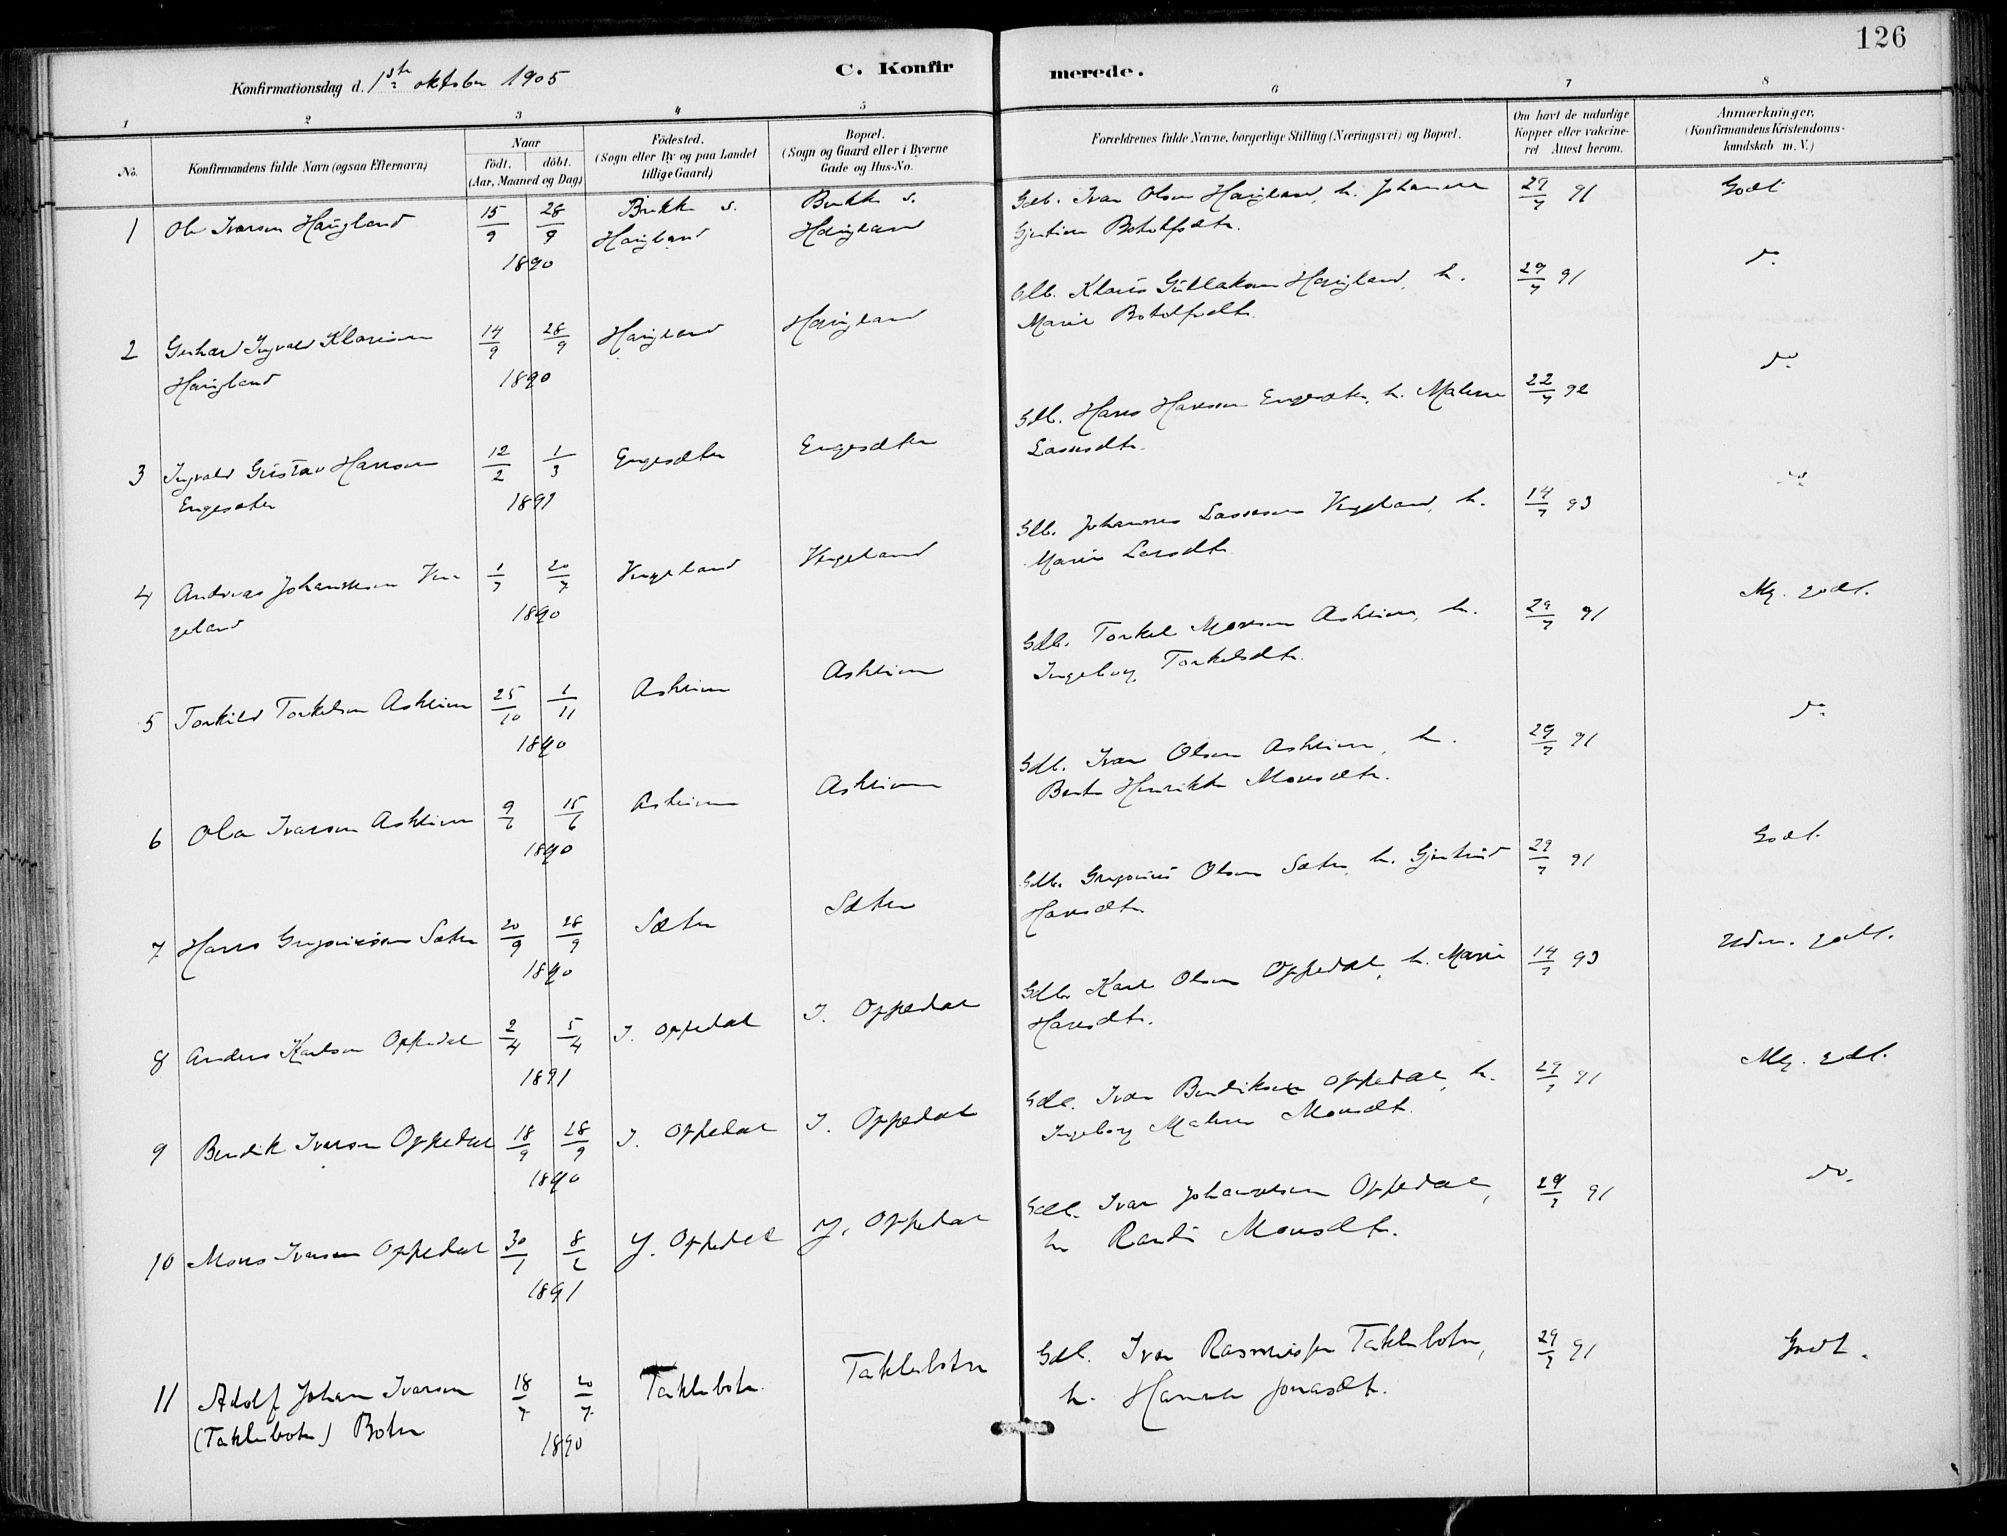 126
Konfirmationsdag d. 1ste oktober 1905
C. Konfirmerede.
1 2 3 4 5 6 7 8
No.
Konfirmandens fulde Navn (ogsaa Efternavn)
Naar
födt. döbt.
(Aar, Maaned og Dag)
Födested.
(Sogn eller By og paa Landet
tillige Gaard)
Bopæl.
(Sogn og Gaard eller i Byerne
Gade og Hus-No.
Forældrenes fulde Navne, borgerlige Stilling (Næringsvei) og Bopæl.
Om havt de naturlige
Kopper eller vakcine-
ret Attest herom.
Anmærkninger.
(Konfirmandens Kristendoms-
kundskab m. V.)
1 Ole Ivarson Haugland 15/9 28/9 1890 Brekke s. Haugland Brekke s. Haugland
Gdb. Ivar Olson Haugland, h. Johanna
Botolfsdtr. 29/7 91 Godt
2 Gerhard Ingvald Klauson
Haugland 14/9 28/9 1890 Haugland Haugland
Gdb. Klaus Gullakson Haugland, h.
Marie Botolfsdtr. 29/7 91 do
3 Ingvald Gustav Hanson
Engesæter 12/2 1/3 1891 Engesæter Engesæter
Gdb. Hans Hanson Engesæter, h. Malene
Lassedtr. 22/7 92 do
4 Andreas Johanneson Ven
geland 1/7 20/7 1890 Vengeland Vengeland
Gdb. Johannes Lasseson Vengeland, h.
Marie Larsdtr. 14/7 93 do
5 Torkild Torkelson Asheim 25/10 1/11 1890 Asheim Asheim
Gdb. Torkel Monson Asheim, h.
Ingeborg Torkelsdtr. 29/7 91 Mg. godt.
6 Ola Ivarson Asheim 9/6 15/6 1890 Asheim Asheim
Gdb. Ivar Olson Asheim, h.
Berte Henrikke Monsdtr. 29/7 91 do
7 Hans Gregoriuson Sæter 20/9 28/9 1890 Sæter Sæter
Gdb. Gregorius Olson Sæter, h. Gjertrud
Hansdtr. 29/7 91 Godt.
8 Anders Karlson Oppedal 2/4 5/4 1891 I. Oppedal I. Oppedal
Gdb. Karl Olson Oppedal, h. Marie
Hansdtr. 14/7 93 Udm. godt.
9 Bendik Ivarson Oppedal 18/9 28/9 1890 I. Oppedal I. Oppedal
Gdb. Ivar Bendikson Oppedal, h.
Ingeborg Malene Monsdtr. 29/7 91 Mg. godt.
10 Mons Ivarson Oppedal 30/1 8/2 1891 Y. Oppedal Y. Oppedal
Gdb. Ivar Johanneson Oppedal,
h. Randi Monsdtr. 29/7 91 do.
11 Adolf Johan Ivarson
(Taklebotn) Botn 18/7 20/7 1890 Taklebotn. Taklebotn
Gdb. Ivar Rasmusson Taklebotn,
h. Hanna Jonasdtr. 29/7 91 Godt.